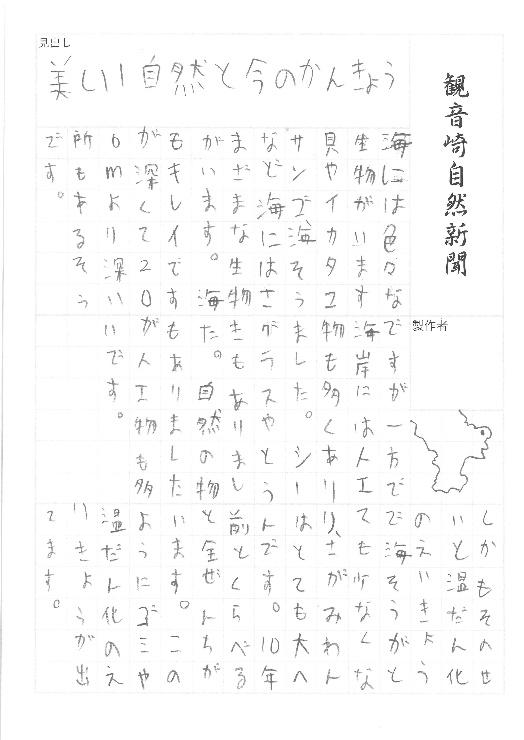 見出し
美しい自然と今のかんきょう
観音崎自然新聞
製作者
海には色々な
生物がいます
貝やイカタコ
サンゴ海そう
など海にはさ
まざまな生物
がいます。海
もキレイです
が深くて20
0mより深い
所もあるそう
です。
ですが一方で
海岸には人工
物も多くあり
ました。シー
グラスやとう
きもありまし
た。自然の物
もありました
が人工物も多
いです。
しかもそのせ
いと温だん化
のえいきょう
で海そうがと
ても少なくな
り、さがみわん
はとても大へ
んです。10年
前とくらべる
と全ぜんちが
います。この
ようにゴミや
温だん化のえ
いきょうが出
てます。